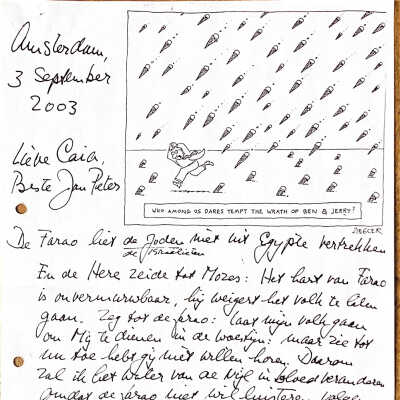 Amsterdam,
3 September
2003
Lieve Caia,
Beste Jan Pieter
WHO AMONG US DARES TEMPT THE WRATH OF BEN & JERRY?
De Farao liet de Joden niet uit Egypte vertrekken
de Israëlieten
En de Here zeide tot Mozes: Het hart van Farao
is onvermurwbaar, hij weigert het volk te laten
gaan. Zeg tot de farao: laat mijn volk gaan
om Mij te dienen in de woestijn: maar zie tot
nu toe hebt gij niet willen horen. Daarom
zal ik het water van de Nijl in bloed veranderen
omdat de farao niet wil luisteren